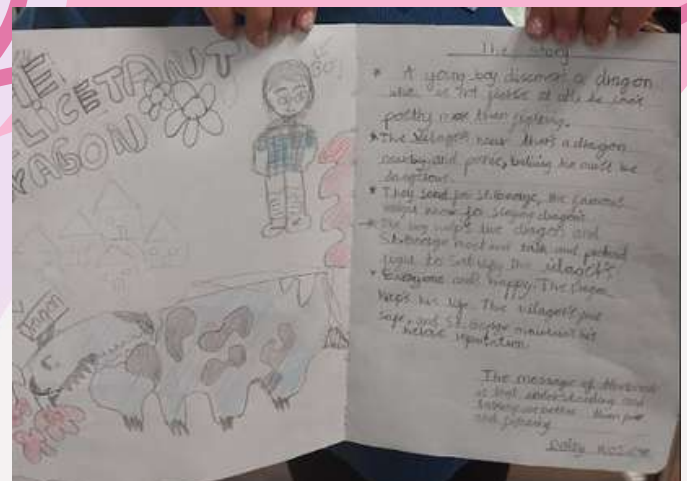 THE
RELICETANT
DRAGON
Boy
Dragon
The story
* A young boy discovers a dragon
who is not fierce at all he loves
poetry more than fighting.
* The Villagers hear there's a dragon
nearby and panic, he must be
dangerous.
* They send for St. George, the famous
knight know for slaying dragons
The boy helps the dragon and
St. George meet and talk and pretend
fight to satisfy the
* Everyone end happy. The Dragon
keeps his life. The villagers feel
safe, and St. George maintains his
heroic reputation.
The message of the
is that understanding and
talking are better than fear
and fighting